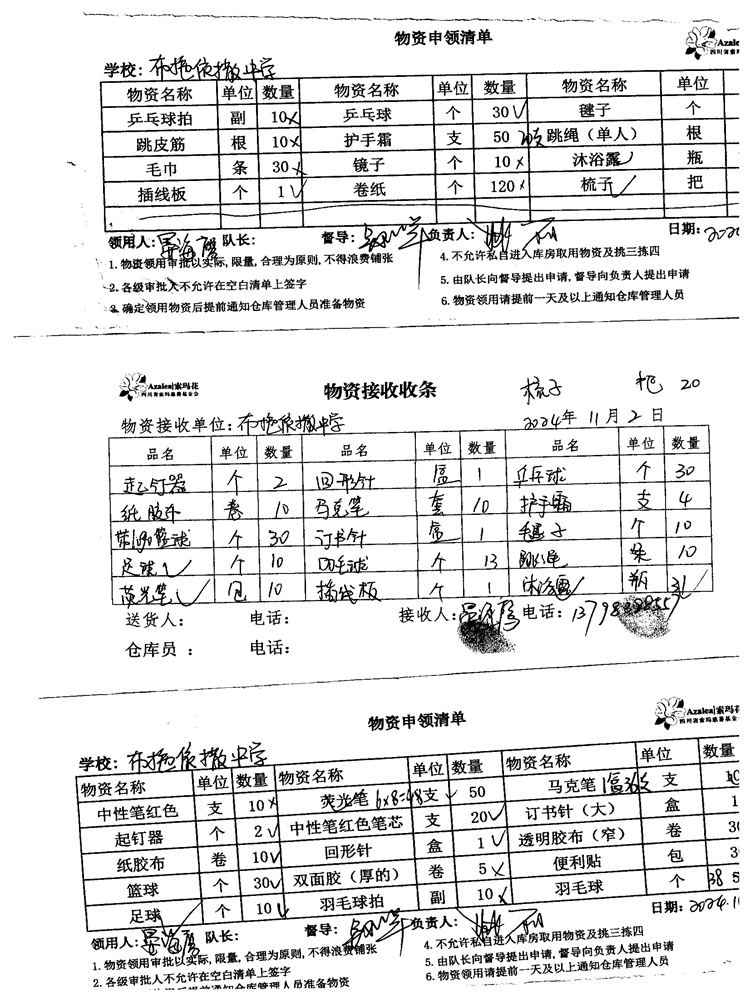 物资申领清单
Azalea
学校: 布拖依撒中学
物资名称 单位 数量 物资名称 单位 数量 物资名称 单位
乒乓球拍 副 10 乒乓球 个 30 毽子 个
跳皮筋 根 10 护手霜 支 50 跳绳（单人） 根
毛巾 条 30 镜子 个 10 沐浴露 瓶
插线板 个 1 卷纸 个 120 梳子 把
领用人: 队长: 督导: 负责人: 日期:
1. 物资领用审批以实际, 限量, 合理为原则, 不得浪费铺张 4. 不允许私自进入库房取用物资及挑三拣四
2. 各级审批人不允许在空白清单上签字 5. 由队长向督导提出申请, 督导向负责人提出申请
3. 确定领用物资后提前通知仓库管理人员准备物资 6. 物资领用请提前一天及以上通知仓库管理人员
Azalea|索玛花
四川省索玛慈善基金会
物资接收收条
梳子 把 20
物资接收单位: 布拖依撒中学 2024年11月2日
品名 单位 数量 品名 单位 数量 品名 单位 数量
起钉器 个 2 回形针 盒 1 乒乓球 个 30
纸胶布 卷 10 马克笔 套 10 护手霜 支 4
篮球 个 30 订书针 盒 1 毽子 个 10
足球 个 10 羽毛球 个 13 跳绳 条 10
荧光笔 包 10 插线板 个 1 沐浴露 瓶 31
送货人: 电话: 接收人: 电话:
仓库员: 电话:
Azalea|索玛花
四川省索玛慈善基金会
物资申领清单
学校: 布拖依撒中学
物资名称 单位 数量 物资名称 单位 数量 物资名称 单位 数量
中性笔红色 支 10 荧光笔 6x8=48 支 50 马克笔 支
起钉器 个 2 中性笔红色笔芯 支 20 订书针（大） 盒
纸胶布 卷 10 回形针 盒 1 透明胶布（窄） 卷
篮球 个 30 双面胶（厚的） 卷 5 便利贴 包
足球 个 10 羽毛球拍 副 10 羽毛球 个 38
领用人: 队长: 督导: 负责人: 日期: 2024.
1. 物资领用审批以实际, 限量, 合理为原则, 不得浪费铺张 4. 不允许私自进入库房取用物资及挑三拣四
2. 各级审批人不允许在空白清单上签字 5. 由队长向督导提出申请, 督导向负责人提出申请
仓库管理人员准备物资 6. 物资领用请提前一天及以上通知仓库管理人员